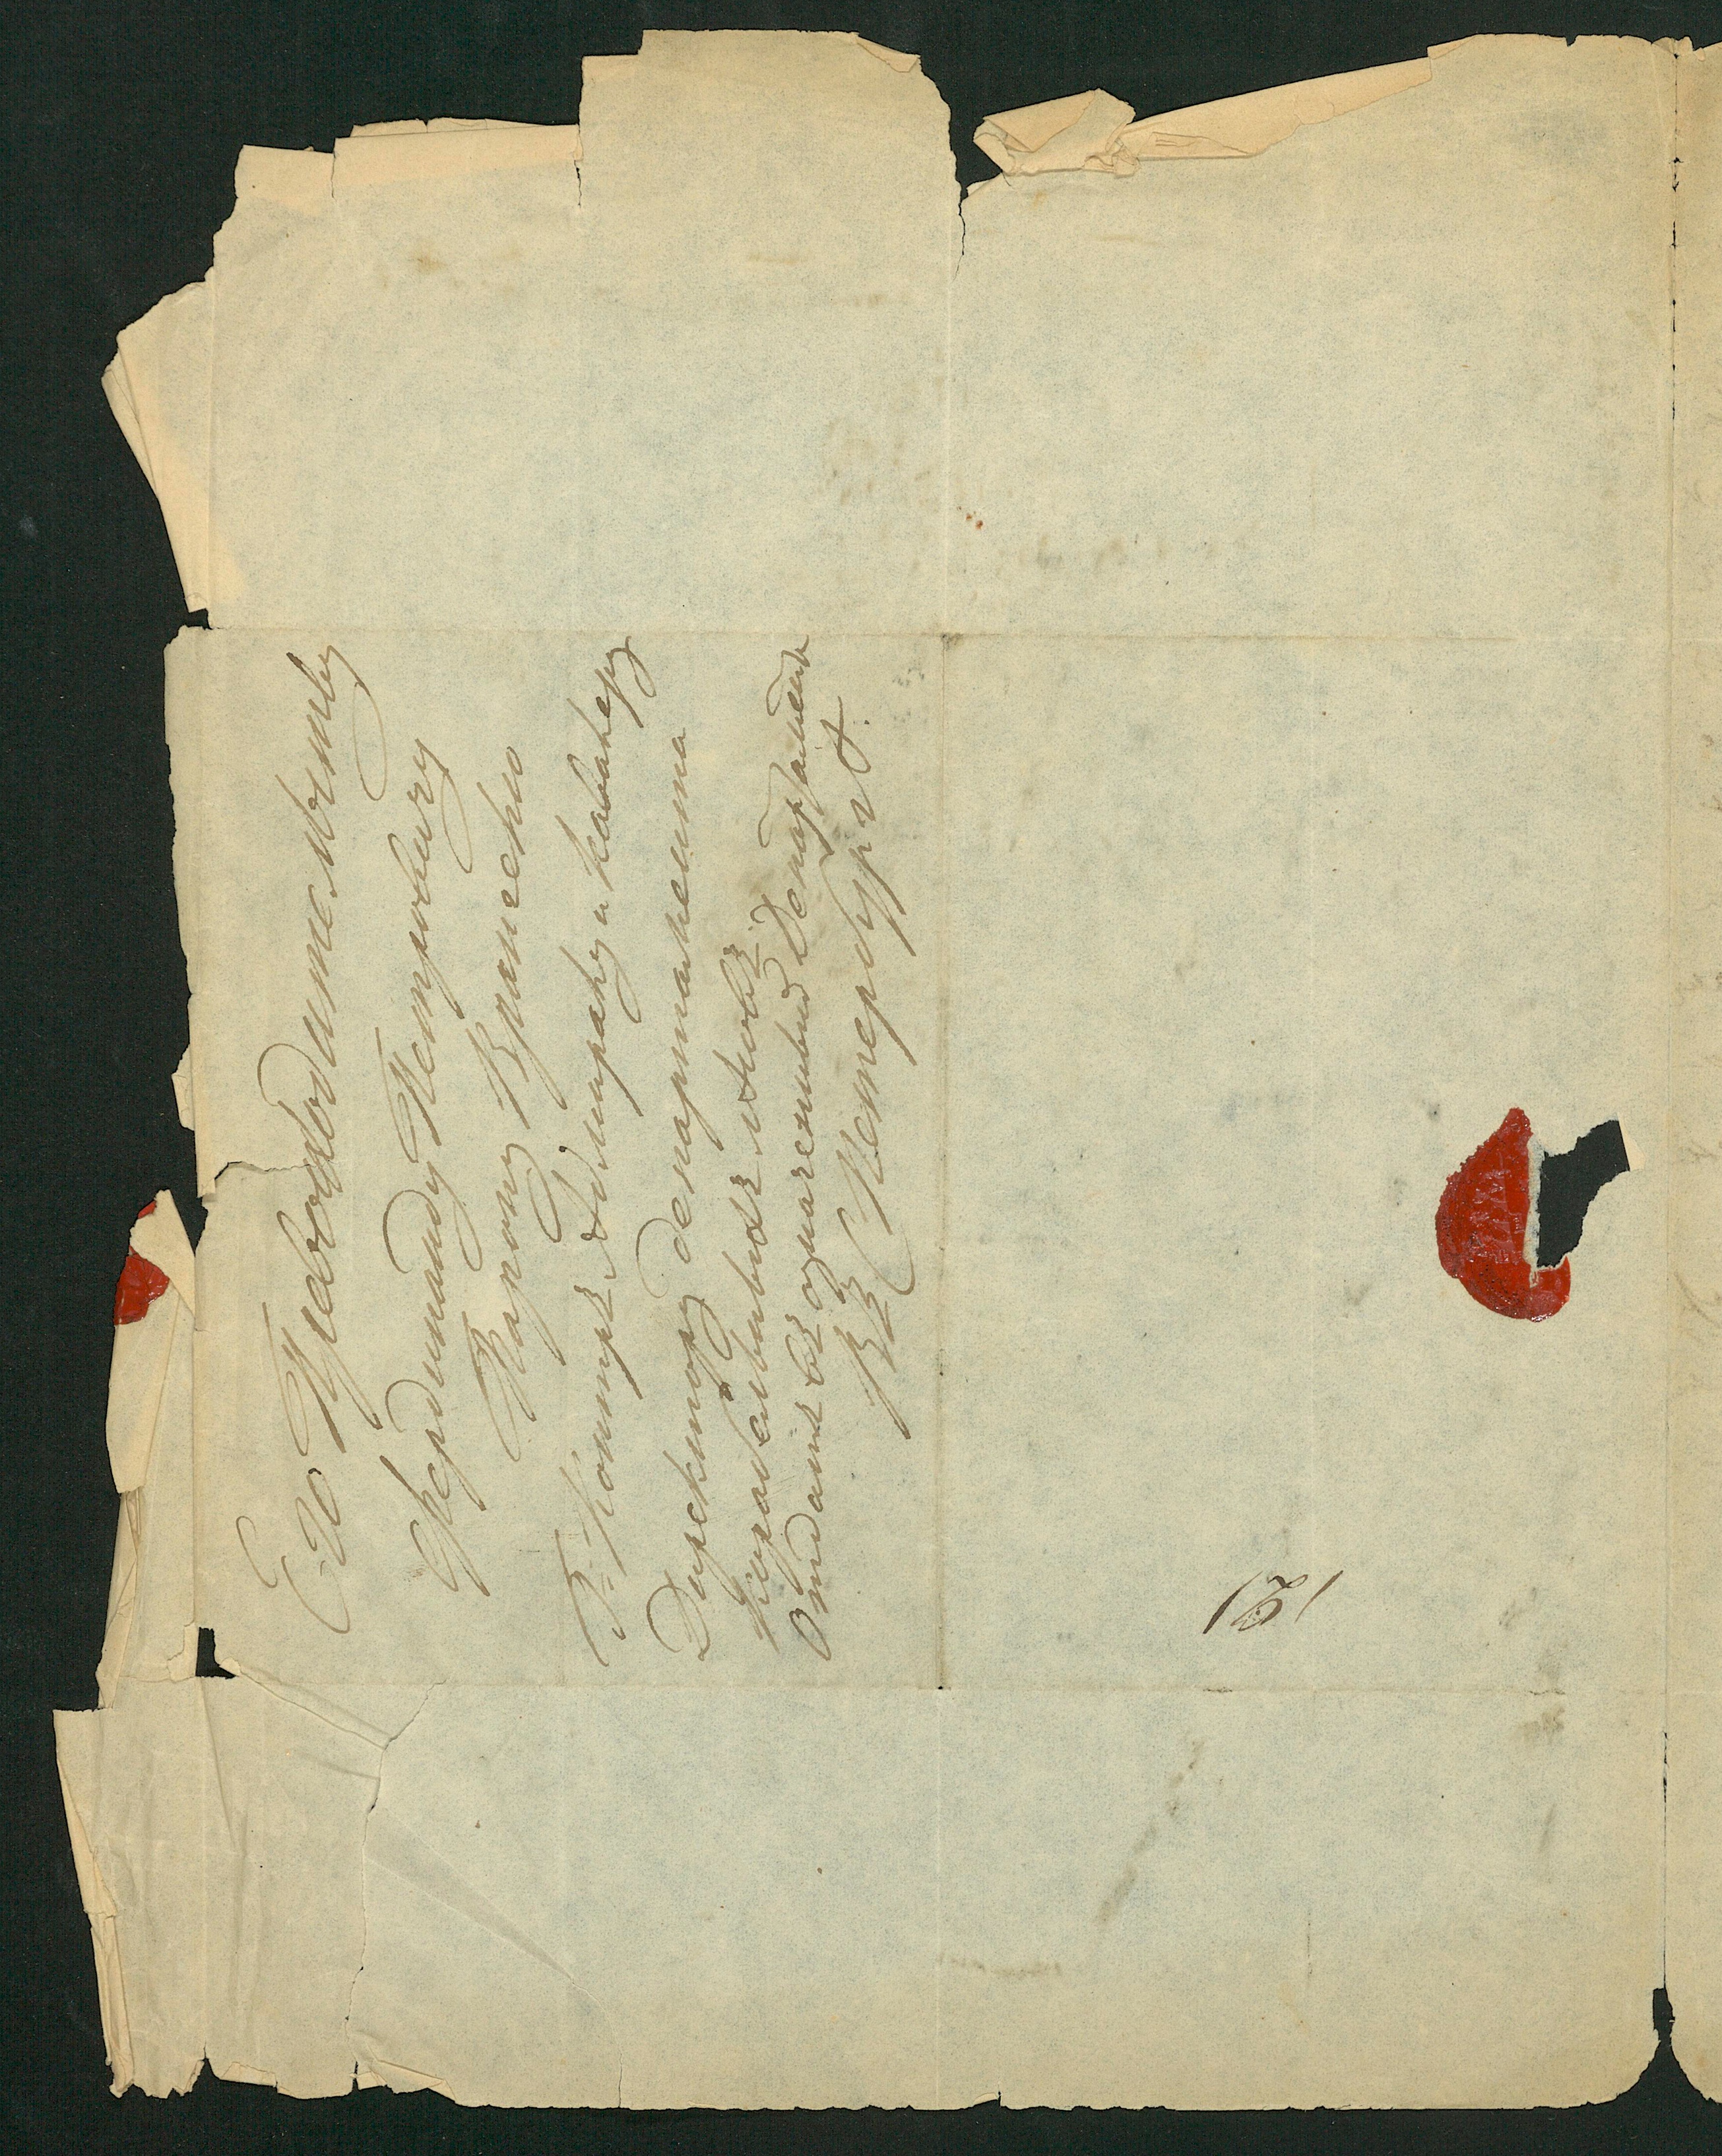 Его Превосходительству
Фердинанду Петровичу
Барону Врангелю
Г. Контръ Адмиралу и Кавалеру
Директору департамента
Корабельныхъ лѣсовъ.
Отдать въ
Департаментъ
Въ С Петербургѣ.
121